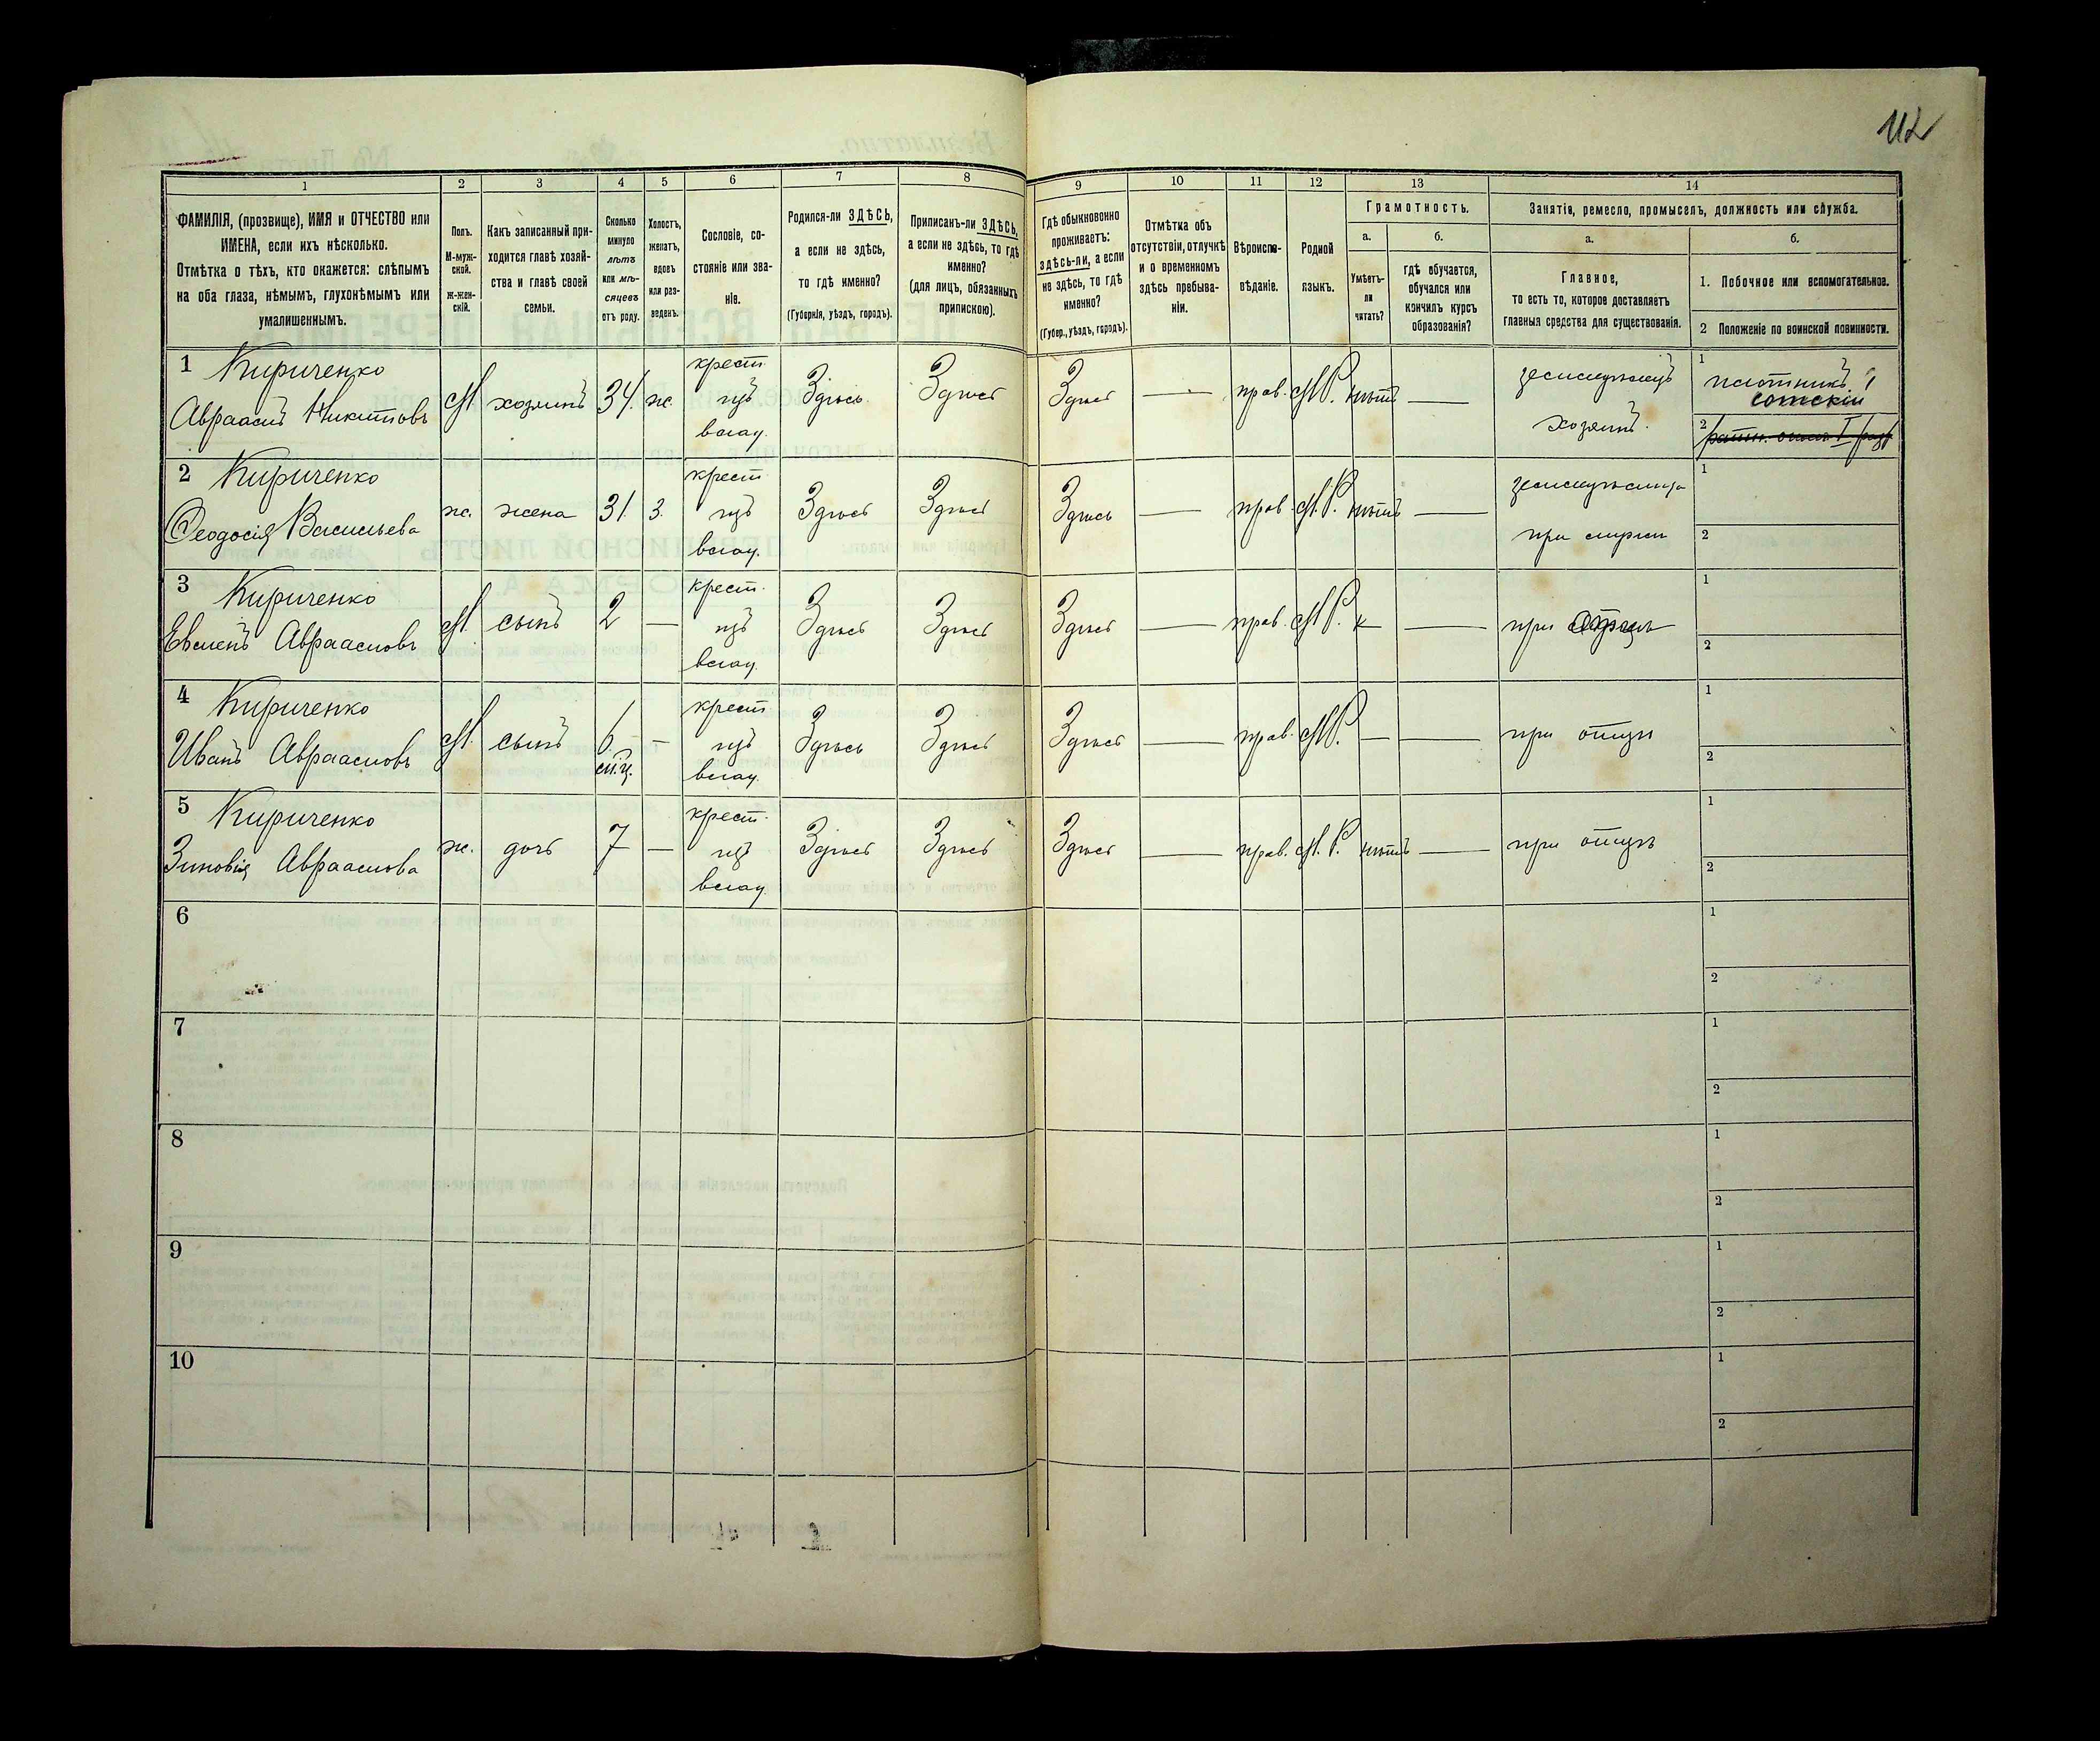 112
1 2 3 4 5 6 7 8 9 10 11 12 13 14
ФАМИЛІЯ, (прозвище), ИМЯ и ОТЧЕСТВО или
ИМЕНА, если ихъ нѣсколько.
Отмѣтка о тѣхъ, кто окажется: слѣпымъ
на оба глаза, нѣмымъ, глухонѣмымъ или
умалишеннымъ.
Полъ.
М-муж-
ской.
Ж-жен-
скій.
Какъ записанный при-
ходится главѣ хозяй-
ства и главѣ своей
семьи.
Сколько
минуло
лѣтъ
или мѣ-
сяцевъ
отъ роду.
Холостъ,
женатъ,
вдовъ
или раз-
веденъ.
Сословіе, со-
стояніе или зва-
ніе.
Родился-ли ЗДѢСЬ,
а если не здѣсь,
то гдѣ именно?
(Губернія, уѣздъ, городъ).
Приписанъ-ли ЗДѢСЬ,
а если не здѣсь, то гдѣ
именно?
(для лицъ, обязанныхъ
припискою).
Гдѣ обыкновенно
проживаетъ:
здѣсь-ли, а если
не здѣсь, то гдѣ
именно?
(Губер., уѣздъ, городъ).
Отмѣтка объ
отсутствіи, отлучкѣ
и о временномъ
здѣсь пребыва-
ніи.
Вѣроиспо-
вѣданіе.
Родной
языкъ.
Грамотность.
а.
Умѣетъ-
ли
читать?
б.
гдѣ обучается,
обучался или
кончилъ курсъ
образованія?
Занятіе, ремесло, промыселъ, должность или служба.
а.
Главное,
то есть то, которое доставляетъ
главныя средства для существованія.
б.
1. Побочное или вспомогательное.
2 Положеніе по воинской повинности.
1 Кириченко
Авраамъ Никитовъ
М хозяинъ 34. ж.
крест.
изъ
влад.
Здѣсь Здѣсь Здѣсь — прав. М.Р. нѣтъ —
земледѣлецъ
хозяинъ.
1 плотникъ.
сотскій
2 ратн. опол. I разр
2 Кириченко
Ѳеодосія Васильева
ж. жена 31. з.
крест
изъ
влад.
Здѣсь Здѣсь Здѣсь — прав. М.Р. нѣтъ —
при
1
2
3 Кириченко
Авраамовъ
М. сынъ 2 —
крест.
изъ
влад.
Здѣсь Здѣсь Здѣсь — прав. М.Р. — —
при отцѣ
1
2
4 Кириченко
Иванъ Авраамовъ
М. сынъ 6. —
крест
изъ
влад.
Здѣсь Здѣсь Здѣсь — прав. М.Р. — —
при отцѣ
1
2
5 Кириченко
Зиновія Авраамова
ж. дочь 7 —
крест.
изъ
влад.
Здѣсь Здѣсь Здѣсь — прав. М.Р. нѣтъ —
при отцѣ
1
2
6
1
2
7
1
2
8
1
2
9
1
2
10
1
2